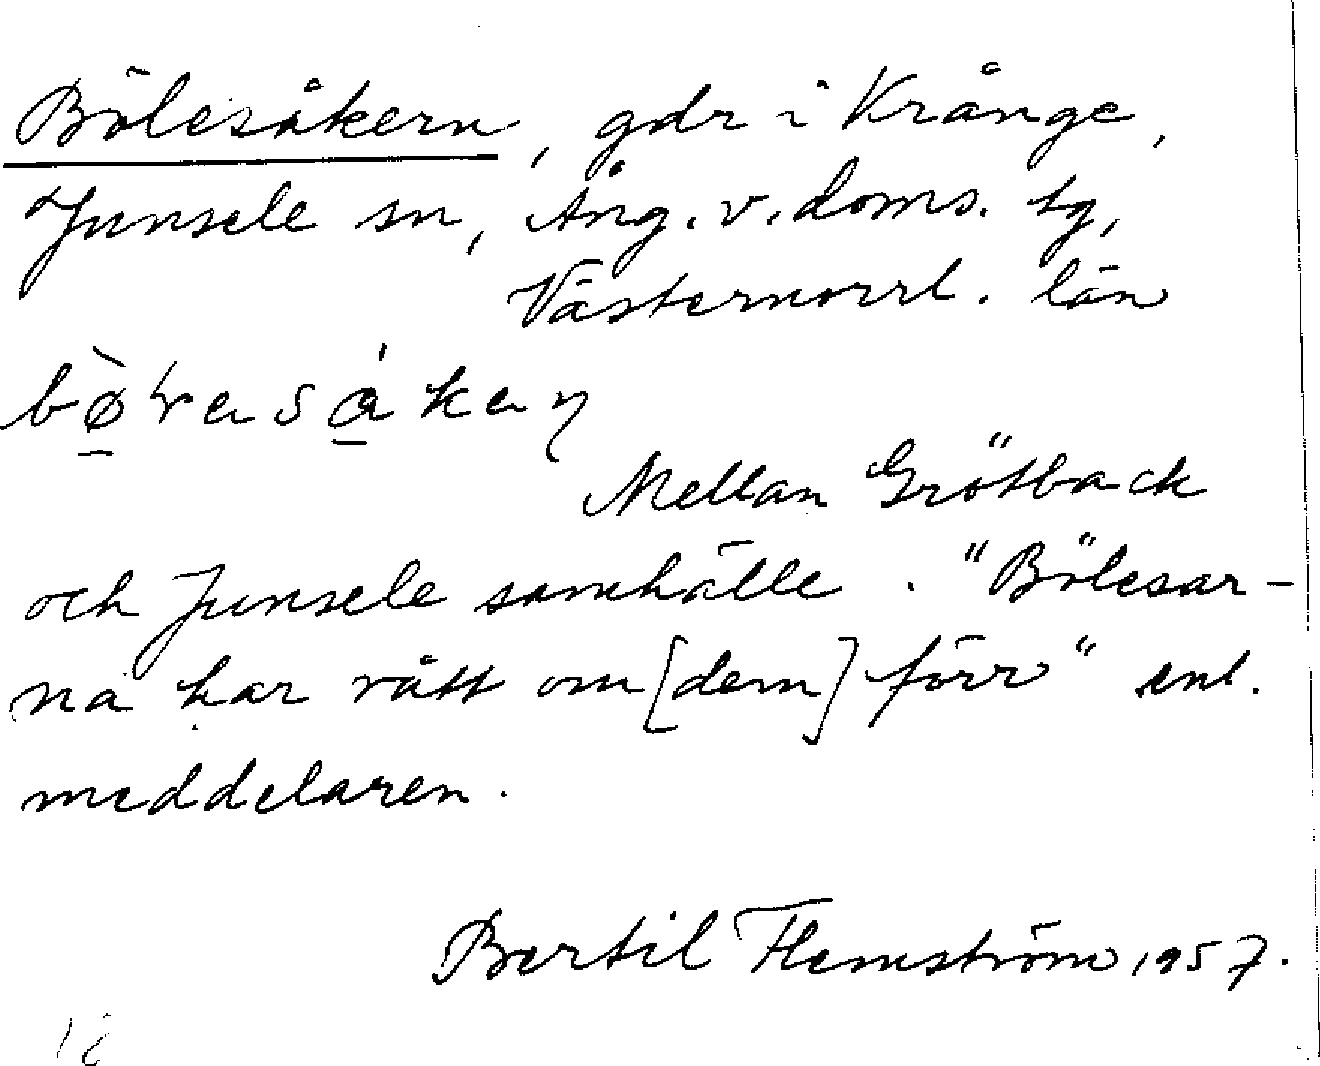 Bölesåkern, gdr i Krånge,
Junsele sn, Ång. v. doms. tg,
Västernorrl. län
Mellan Grötback
och Junsele samhälle. "Bölesar-
na har rått om [dem] förr" enl.
meddelaren.
Bertil Flemström 1957.